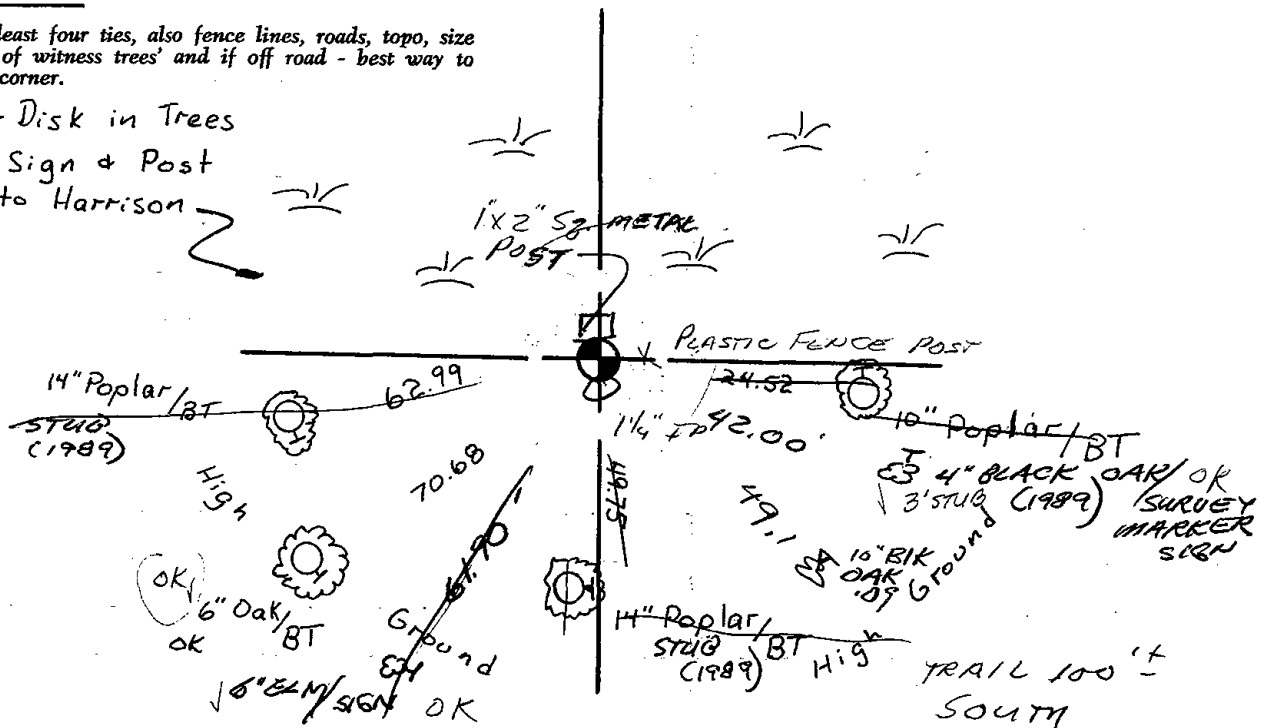 least four ties, also fence lines, roads, topo, size
of witness trees' and if off road - best way to
corner.
Disk in Trees
Sign & Post
to Harrison
1"x2" Sq. METAL
POST
PLASTIC FENCE POST
14" Poplar/BT
STUB
(1989)
62.99
24.52
1¼" IP
42.00'
10" Poplar/BT
4" BLACK OAK/ OK
3' STUB (1989)
SURVEY
MARKER
SIGN
High
70.68
49.75
49.1
10" BlK
OAK
'09
Ground
OK
6" Oak/BT
OK
61.90
Ground
6" ELM/SIGN OK
14" Poplar/BT
STUB
(1989)
High
TRAIL 100'±
SOUTH